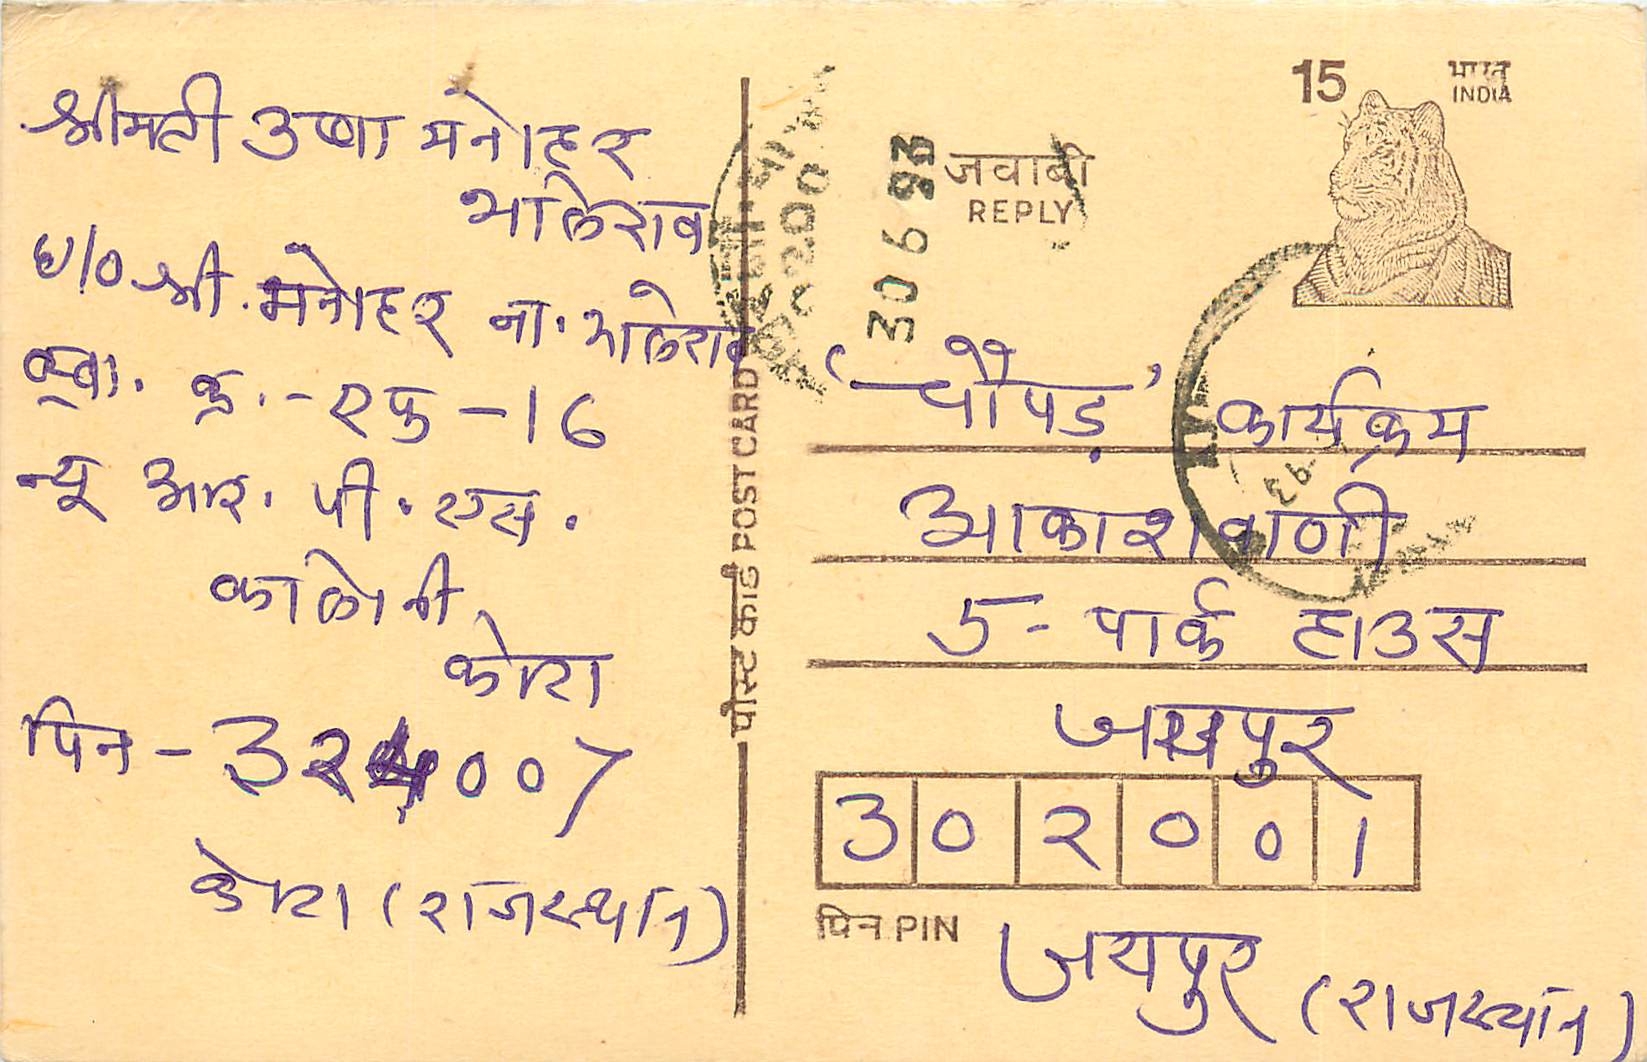 श्रीमती उषा मनोहर
भालेराव
ध/० श्री. मनोहर ना. भालेराव
क्वा. क्र. - एफ - 16
न्यू आर. पी. एस.
कालोनी
कोटा
पिन - 324007
कोटा (राजस्थान)
पोस्ट कार्ड POST CARD
30 6 93
जवाबी
REPLY
15
भारत
INDIA
'चौपड़' कार्यक्रम
आकाशवाणी
5 - पार्क हाउस
जयपुर
302001
पिन PIN
जयपुर (राजस्थान)